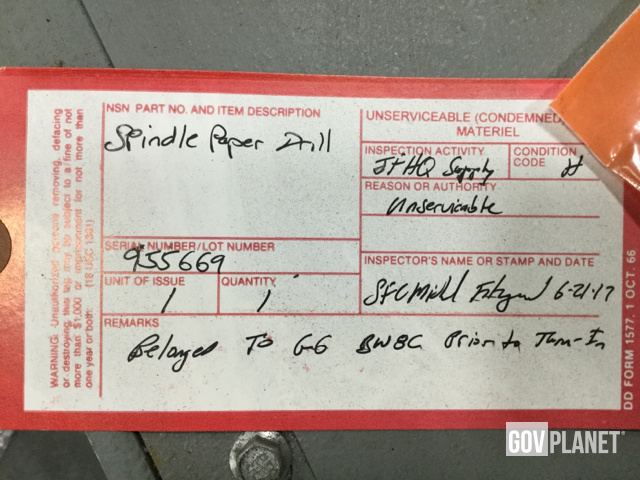 NSN PART NO. AND ITEM DESCRIPTION
Spindle Paper Drill
UNSERVICEABLE (CONDEMNED)
MATERIEL
INSPECTION ACTIVITY
Jt HQ Supply
CONDITION
CODE H
REASON OR AUTHORITY
Unservicable
SERIAL NUMBER/LOT NUMBER
955669
UNIT OF ISSUE
1
QUANTITY
1
INSPECTOR'S NAME OR STAMP AND DATE
SFC 6-21-17
REMARKS
Belonged To G-6 BWBC Prior to Turn-In
WARNING: Unauthorized persons removing, defacing
or destroying this tag may be subject to a fine of not
more than $1,000 or imprisonment for not more than
one year or both. (18 USC 1361)
DD FORM 1577. 1 OCT. 66
GOVPLANET